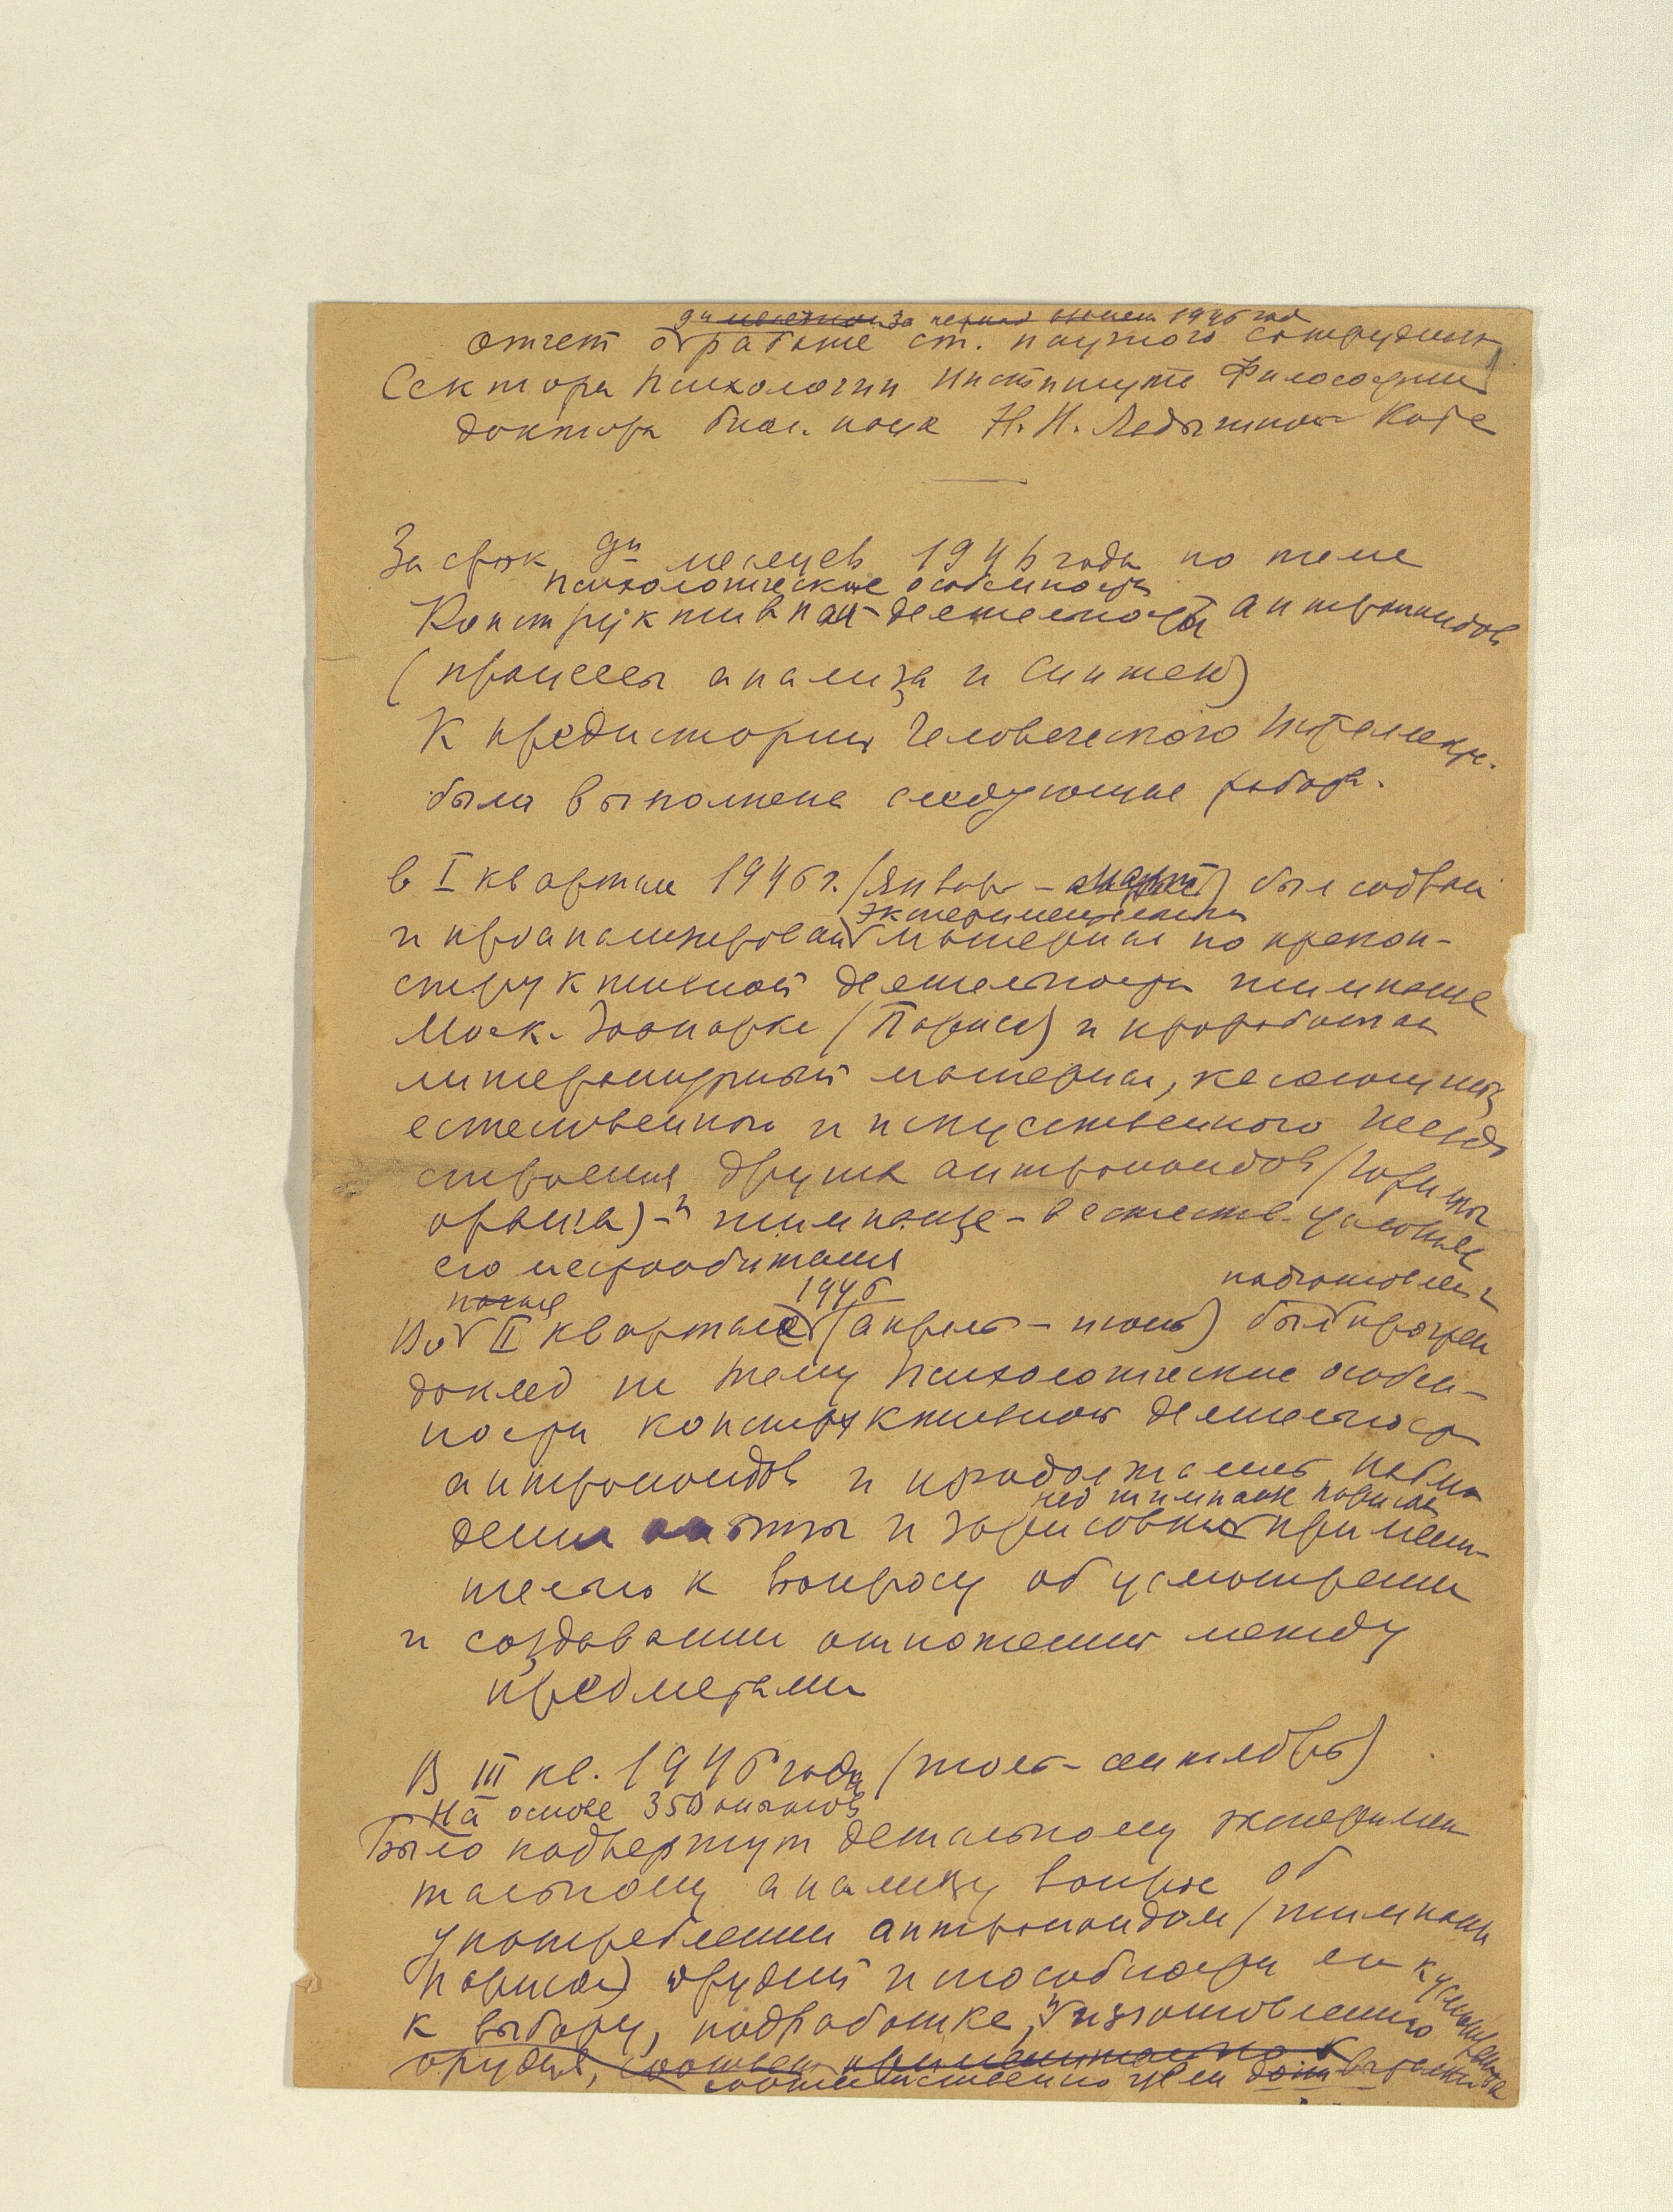 9ти месячном За период 1946 год
отчет о работе ст. научного сотрудника
Сектора психологии Института Философии
доктора биол. наук Н. Н. Ладыгиной-Котс
За срок 9ти месяцев 1946 года по теме
психологические особенности
Конструктивная деятельность антропоидов
(процессы анализа и синтеза)
К предистории человеческого интеллекта.
была выполнена следующая работа.
в I квартал 1946 г. (январь - март) был собран
экспериментальный
и проанализирован материал по кон-
структивной деятельности шимпанзе
Моск. Зоопарка (Париса) и проработан
литературный материал, касающийся
естественного и искусственного гнездо
строения других антропоидов (гориллы
оранга) - и шимпанзе - в естеств. условиях
его местообитания
1946 подготовлен и
Во II квартале (апрель - июнь) был прочтен
доклад на тему Психологические особен-
ности конструктивной деятельности
антропоидов и продолжались наблю
над шимпанзе Парисом
дения опыты и зарисовки примени-
тельно к вопросу об усмотрении
и создавании отношения между
предметами
В III кв. 1946 года (июль - сентябрь)
На основе 350 опытов
Было подвергнут детальному эксперимен
тальному анализу вопрос об
употреблении антропоидом (шимпанзе
Парисом) орудий и способности его
к выбору, подработке, и изготовлению
орудия, соответ применительно к
соответственно цели